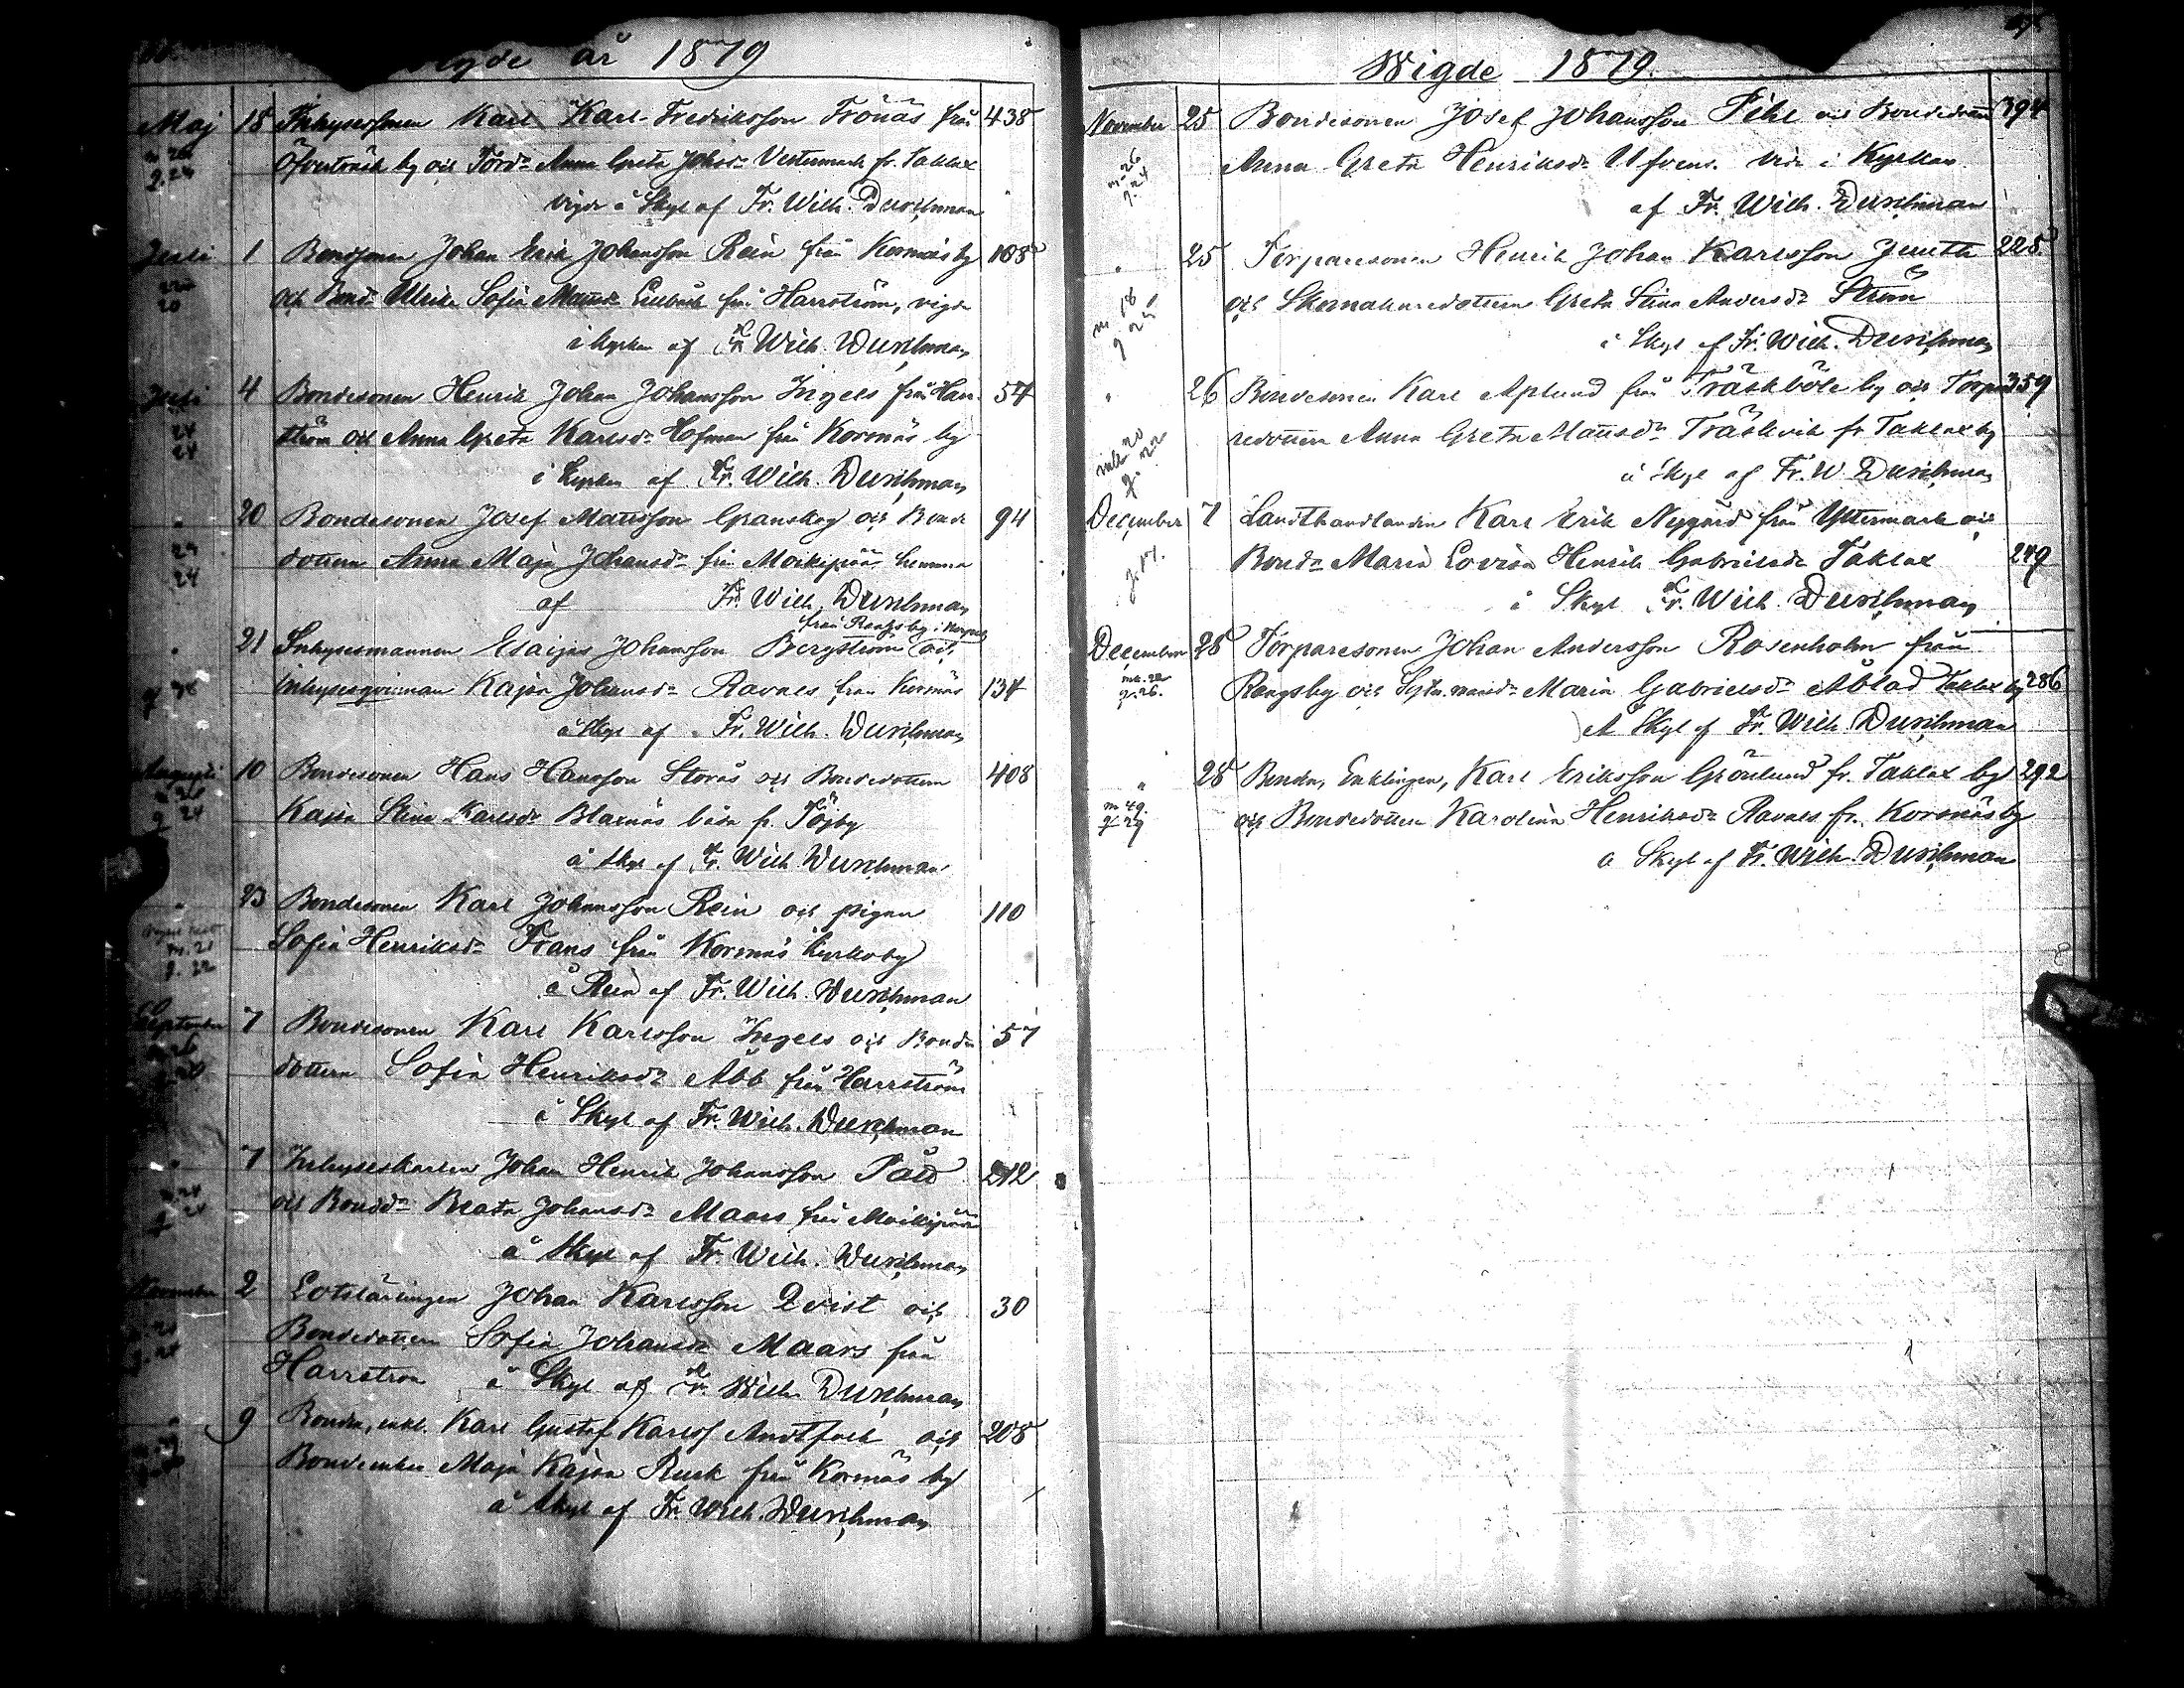 Wigde år 1879
Maj 18 Inhysessonen Karl Karl-Fredriksson Frönäs från 438
m. 26
q. 24
Öfverträsk by och Tord:r Anna Greta Johsdr Vestermark fr. Taklax
vigde å Skyl af Fr. Wilh. Durchman
Juli 1 Bondsonen Johan Erik Johansson Rein från Korsnäs by 108
20
och Bondr Ulrika Sofia Mattsdr från Harrström, vigde
i kyrkan af Fr. Wilh. Durchman
Juli 4 Bondesonen Henrik Johan Johansson Ingels från Harr 54
24
24
ström och Anna Greta Karlsdr Hofman från Korsnäs by
i kyrkan af Fr. Wilh. Durchman
" 20 Bondesonen Josef Mattsson Granskog och Bonde 94
24
24
dottern Anna Maja Johansdr från Moikipää hemma
af Fr. Wilh. Durchman
från Rangsby i Korpo
" 21 Inhysesmannen Esaijas Johansson Bergström och
inhysesqvinnan Kajsa Johansdr Ravals från Korsnäs 134
å Skyl af Fr. Wilh. Durchman
Augusti 10 Bondesonen Hans Hansson Storås och Bondedottern 408
q 24
Kajsa Stina Karlsdr Blaxnäs båda fr. Töjby
å Skyl af Fr. Wilh. Durchman
" 23 Bondesonen Karl Johansson Rein och pigan 110
m. 21
q. 22
Sofia Henriksdr Frans från Korsnäs kyrkoby
å Rein af Fr. Wilh. Durchman
September 7 Bondesonen Karl Karlsson Ingels och Bonde 57
m. 26
dottern Sofia Henriksdr Åbb från Harrström
å Skyl af Fr. Wilh. Durchman
" 7 Inhyseskarlen Johan Henrik Johansson Påld 212
m. 24
q 24
och Bondedr Beata Johansdr Maars från Moikipää
å Skyl af Fr. Wilh. Durchman
November 2 Lotslärlingen Johan Karlsson Qvist och 30
Bondedottern Sofia Johansdr Maars från
Harrström å Skyl af Fr. Wilh. Durchman
" 9 Bonden, enkl. Karl Gustaf Karlss Andtfolk och 208
Bondeenkan Maja Kajsa Rusk från Korsnäs by
å Skyl af Fr. Wilh. Durchman
Wigde 1879.
November 25 Bondesonen Josef Johansson Pihl och Bondedottern 394
m. 26
q. 24
Anna Greta Henriksdr Ulfvens. vid i Kyrkan
af Fr. Wilh. Durchman
" 25 Torparesonen Henrik Johan Karlsson Jeuth 225
m 18
q 25
och Skomakaredottern Greta Stina Andersdr Ström
i Skyl af Fr. Wilh. Durchman
" 26 Bondesonen Karl Asplund från Träskböle by och Torpa 359
m 20
q. 22
redottern Anna Greta Mattsdr Träskvik fr Taklax by
å Skyl af Fr. W. Durchman
December 7 Landthandlanden Karl Erik Nygård från Yttermark och
q. 17.
Bondr Maria Lovisa Henrik Gabrielsdr Taklax 249
å Skyl Fr. Wilh. Durchman
December 28 Torparesonen Johan Andersson Rosenholm från
m. 22
q. 26.
Rangsby och Maria Gabrielsdr Åblad Taklax by 286
Å Skyl af Fr. Wilh. Durchman
" 28 Bonden, Enklingen, Karl Eriksson Grönlund fr. Taklax by 292
m 49.
q 29
och Bondedottern Karolina Henriksdr Ravals fr. Korsnäs by
å Skyl af Fr. Wilh. Durchman